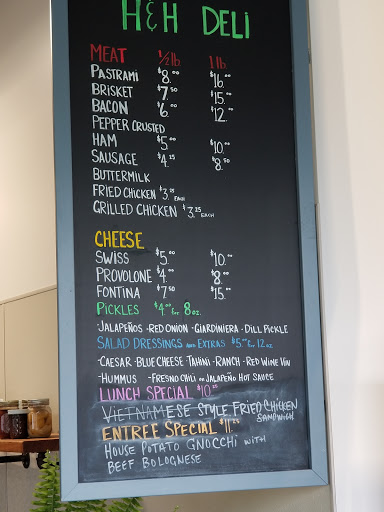 H&H DELI
MEAT ½ lb. 1 lb.
PASTRAMI $8.00 $16.00
BRISKET $7.50 $15.00
BACON $6.00 $12.00
PEPPER CRUSTED
HAM $5.00 $10.00
SAUSAGE $4.25 $8.50
BUTTERMILK
FRIED CHICKEN $3.25 EACH
GRILLED CHICKEN $3.25 EACH
CHEESE
SWISS $5.00 $10.00
PROVOLONE $4.00 $8.00
FONTINA $7.50 $15.00
PICKLES $4.00 for 8 oz.
-JALAPEÑOS -RED ONION -GIARDINIERA -DILL PICKLE
SALAD DRESSINGS AND EXTRAS $5.00 for 12 oz
-CAESAR -BLUE CHEESE TAHINI -RANCH -RED WINE VIN
-HUMMUS -FRESNO CHILI or JALAPEÑO HOT SAUCE
LUNCH SPECIAL $10.25
VIETNAMESE STYLE FRIED CHICKEN
SANDWICH
ENTREE SPECIAL $11.25
HOUSE POTATO GNOCCHI WITH
BEEF BOLOGNESE